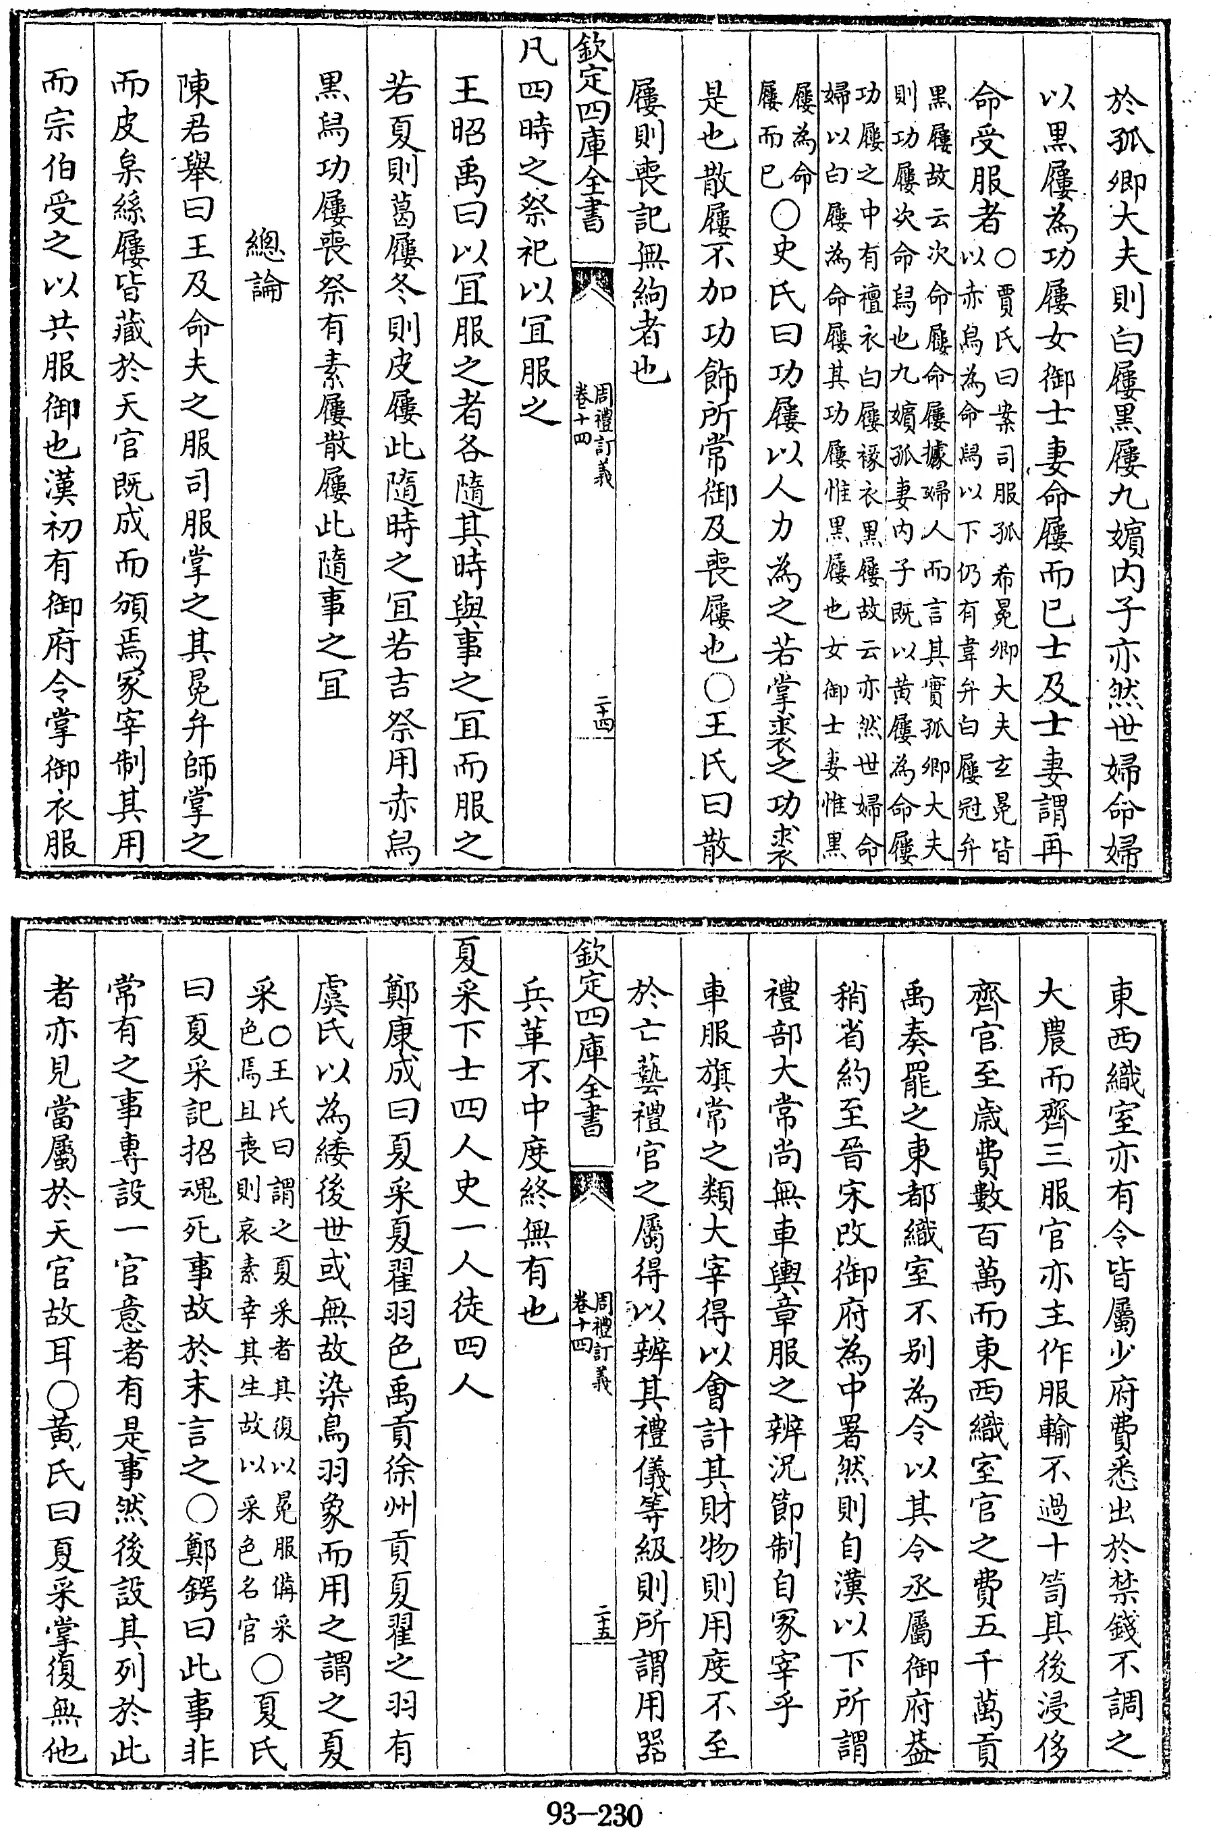 於孤卿大夫則白屨黑屨九嬪内子亦然世婦命婦
以黑屨為功屨女御士妻命屨而已士及士妻謂再
命受服者○賈氏曰案司服孤希冕卿大夫玄冕皆
以赤舄為命舄以下仍有韋弁白屨冠弁
黑屨故云次命屨命屨據婦人而言其實孤卿大夫
則功屨次命舄也九嬪孤妻内子既以黄屨為命屨
功屨之中有襢衣白屨褖衣黑屨故云亦然世婦命
婦以白屨為命屨其功屨惟黑屨也女御士妻惟黑
屨為命
屨而已○史氏曰功屨以人力為之若掌裘之功裘
是也散屨不加功飾所常御及喪屨也○王氏曰散
屨則喪記無絇者也
欽定四庫全書
周禮訂義
卷十四
二十四
凡四時之祭祀以宜服之
王昭禹曰以宜服之者各隨其時與事之宜而服之
若夏則葛屨冬則皮屨此隨時之宜若吉祭用赤舄
黑舄功屨喪祭有素屨散屨此隨事之宜
總論
陳君舉曰王及命夫之服司服掌之其冕弁師掌之
而皮枲絲屨皆藏於天官既成而頒焉冢宰制其用
而宗伯受之以共服御也漢初有御府令掌御衣服
東西織室亦有令皆屬少府費悉出於禁錢不調之
大農而齊三服官亦主作服輸不過十笥其後浸侈
齊官至歳費數百萬而東西織室官之費五千萬貢
禹奏罷之東都織室不别為令以其令丞屬御府葢
稍省約至晉宋改御府為中署然則自漢以下所謂
禮部大常尚無車輿章服之辨况節制自冢宰乎
車服旗常之類大宰得以會計其財物則用度不至
於亡藝禮官之屬得以辨其禮儀等級則所謂用器
欽定四庫全書
周禮訂義
卷十四
二十五
兵革不中度終無有也
夏采下士四人史一人徒四人
鄭康成曰夏采夏翟羽色禹貢徐州貢夏翟之羽有
虞氏以為緌後世或無故染鳥羽象而用之謂之夏
采○王氏曰謂之夏采者其復以冕服備采
色焉且喪則哀素幸其生故以采色名官○夏氏
曰夏采記招魂死事故於末言之○鄭鍔曰此事非
常有之事專設一官意者有是事然後設其列於此
者亦見當屬於天官故耳○黄氏曰夏采掌復無他
93-230